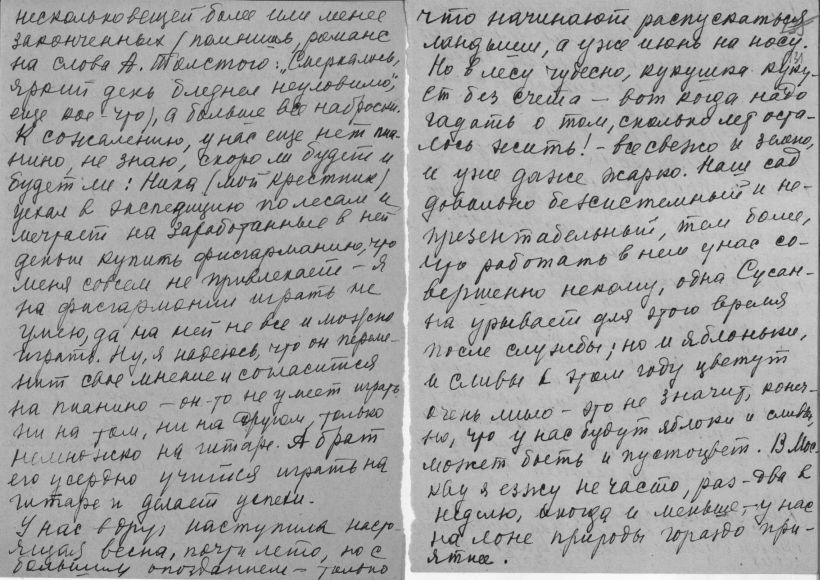 несколько вещей более или менее
законченных (помнишь, романс
на слова А. Толстого: „Смеркалось,
яркий день бледнел неуловимо",
еще кое-что), а больше все наброски.
К сожалению, у нас еще нет пиа-
нино, не знаю, скоро ли будет и
будет ли: Ника (мой крестник)
уехал в экспедицию по лесам и
мечтает на заработанные в ней
деньги купить фисгармонию, что
меня совсем не привлекает – я
на фисгармонии играть не
умею, да на ней не все и можно
играть. Ну, я надеюсь, что он переме-
нит свое мнение и согласится
на пианино – он-то не умеет играть
ни на том, ни на другом, только
немножко на гитаре. А брат
его усердно учится играть на
гитаре и делает успехи.
У нас вдруг наступила насто-
ящая весна, почти лето, но с
большим опозданием – только
что начинают распускаться
ландыши, а уже июнь на носу.
Но в лесу чудесно, кукушка куку-
ет без счета – вот когда надо
гадать о том, сколько лет оста-
лось жить! – все свежо и зелено,
и уже даже жарко. Наш сад
довольно бессистемный и не-
презентабельный, тем более,
что работать в нем у нас со-
вершенно некому, одна Сусан-
на урывает для этого время
после службы; но и яблоньки,
и сливы в этом году цветут
очень мило – это не значит, конеч-
но, что у нас будут яблоки и сливы,
может быть и пустоцвет. В Мос-
кву я езжу не часто, раз-два в
неделю, иногда и меньше – у нас
на лоне природы гораздо при-
ятнее.